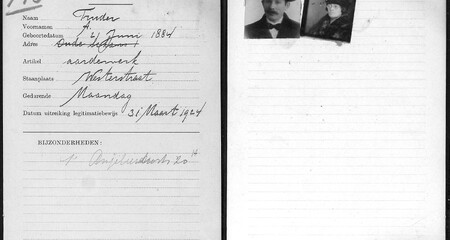 Naam Truder
Voornamen: A.
Geboortedatum 21 Juni 1884
Adres Oude
Artikel aardewerk
Staanplaats Westerstraat
Gedurende Maandag
Datum uitreiking legitimatiebewijs 31 Maart 1924
BIJZONDERHEDEN: